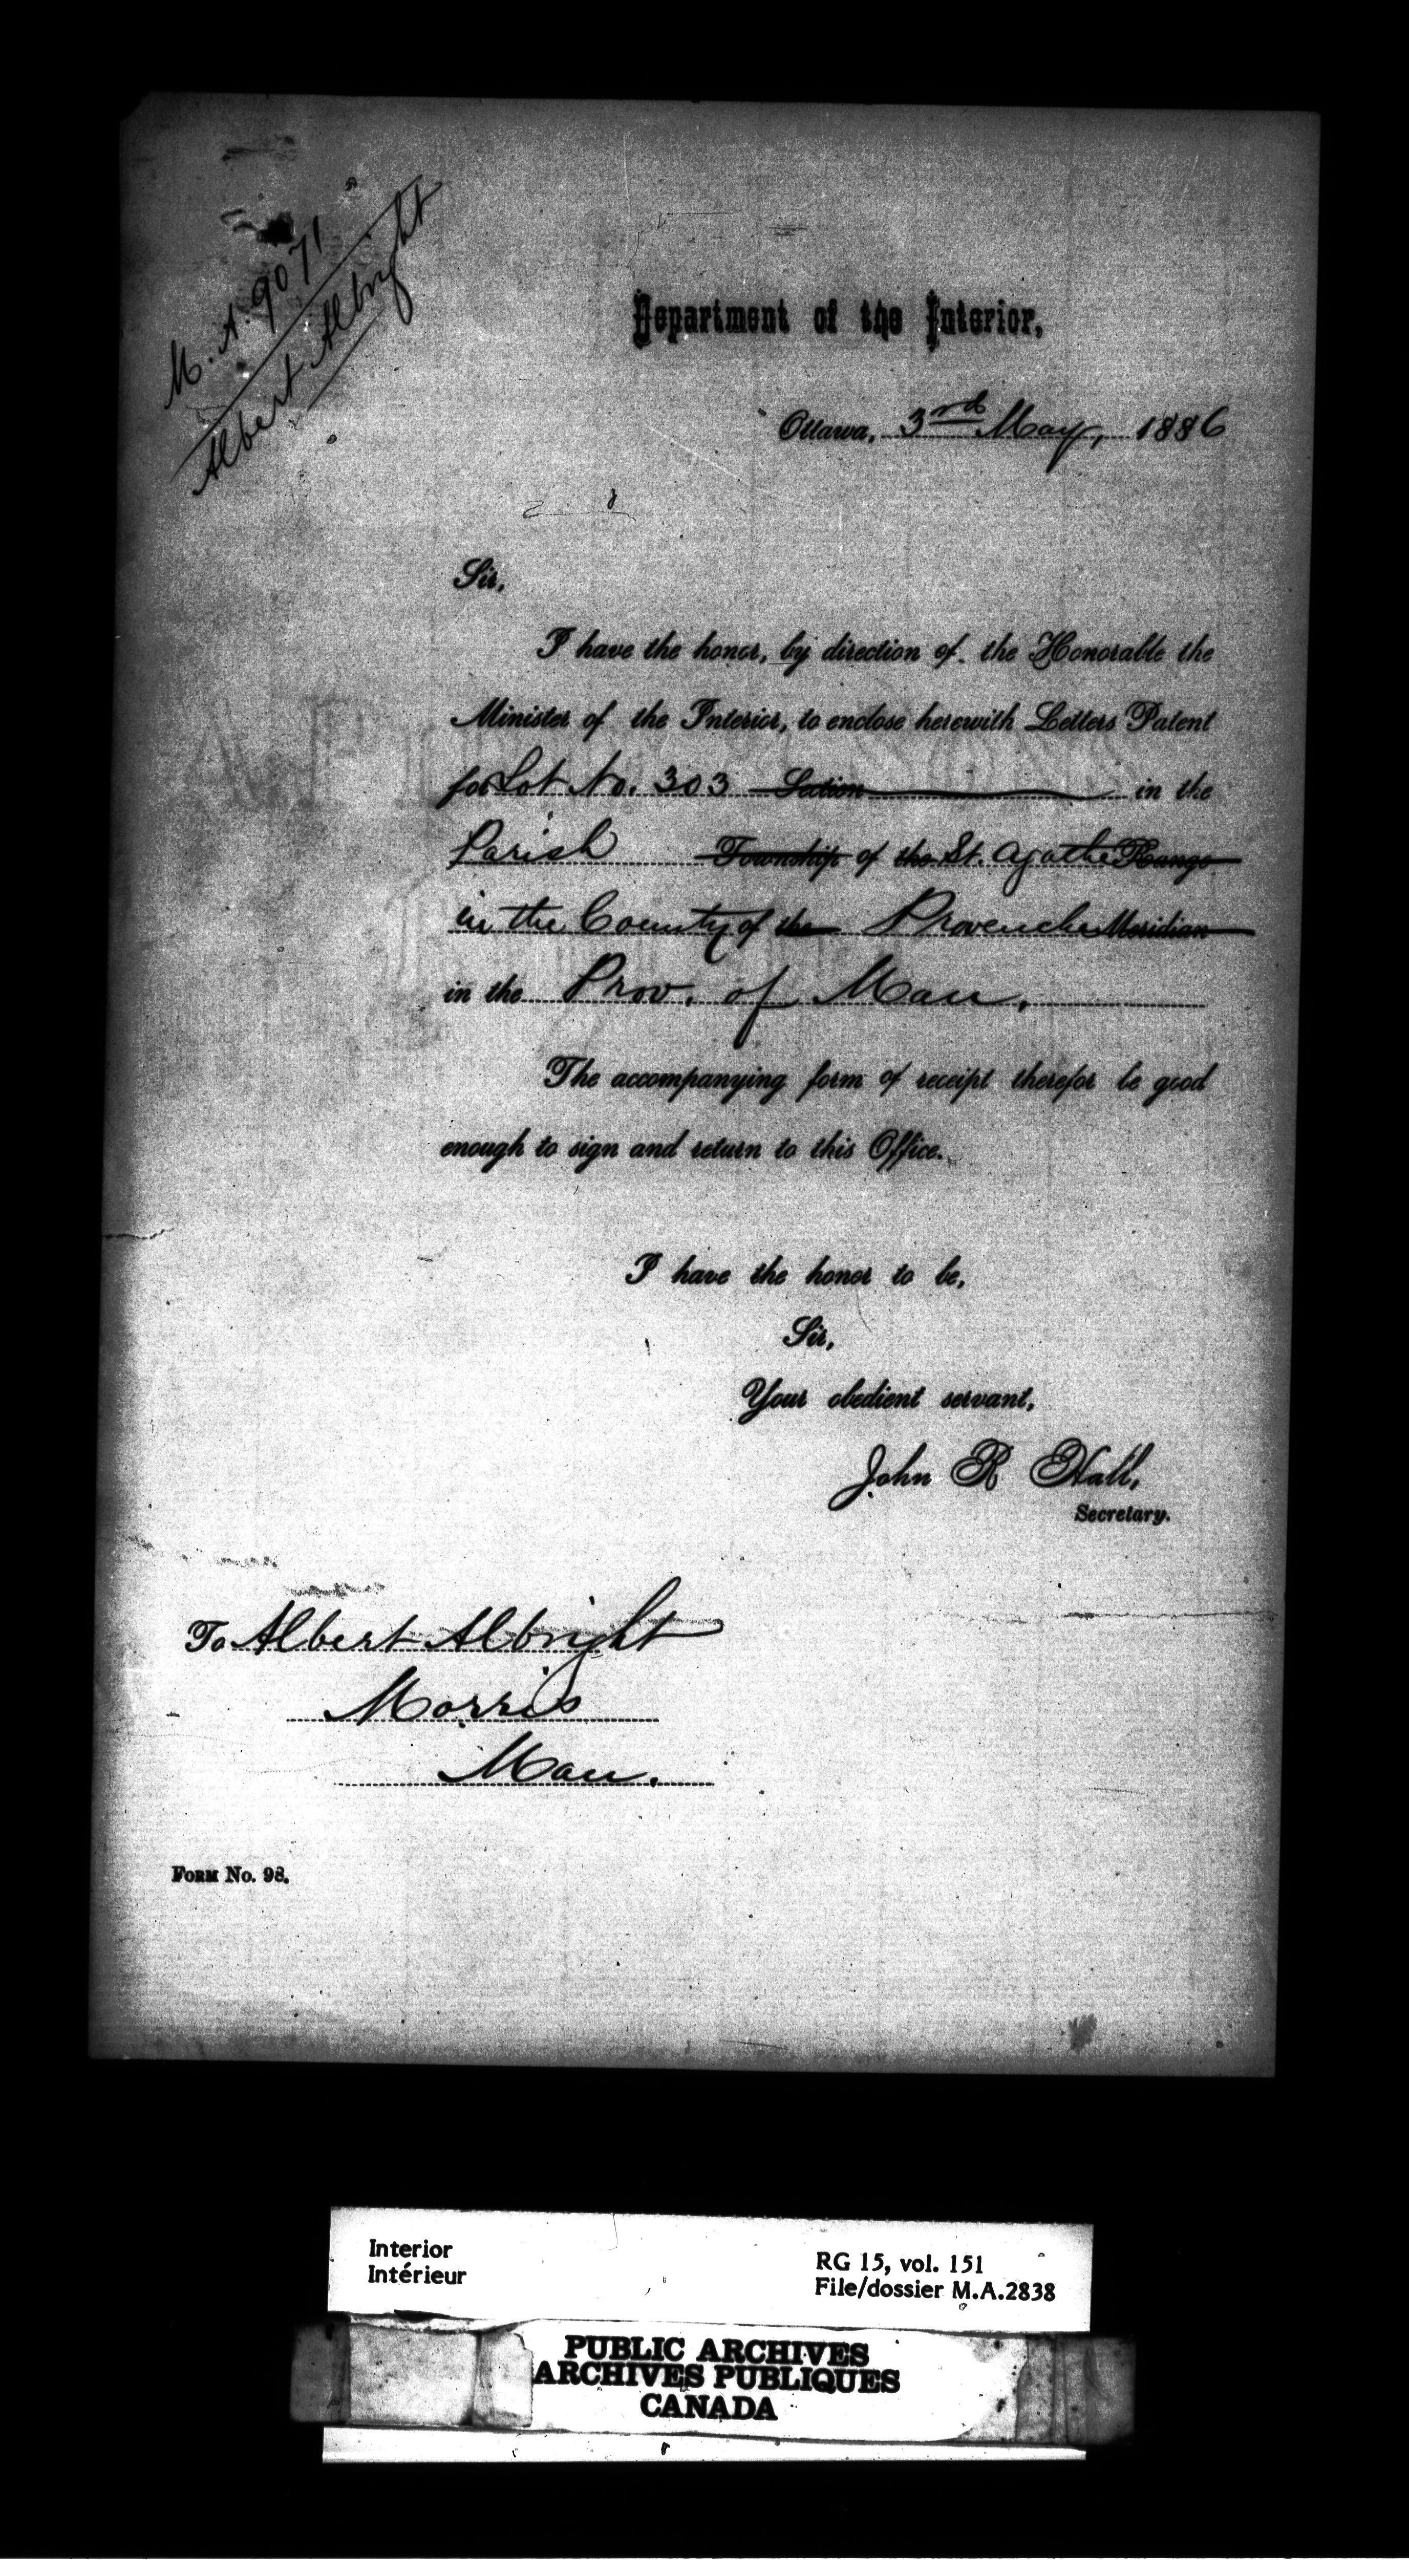 M. A. 9071
Albert Albright
Department of the Interior,
Ottawa, 3rd May, 1886
Sir,
I have the honor, by direction of the Honorable the
Minister of the Interior, to enclose herewith Letters Patent
for Lot No. 303 Section in the
Parish Township of the St. Agathe Range
in the County of the Provencher Meridian
in the Prov. of Man.
The accompanying form of receipt therefor be good
enough to sign and return to this Office.
I have the honor to be,
Sir,
Your obedient servant,
John R Hall,
Secretary.
To Albert Albright
Morris
Man.
FORM No. 98.
Interior
Intérieur
RG 15, vol. 151
File/dossier M.A.2838
PUBLIC ARCHIVES
ARCHIVES PUBLIQUES
CANADA